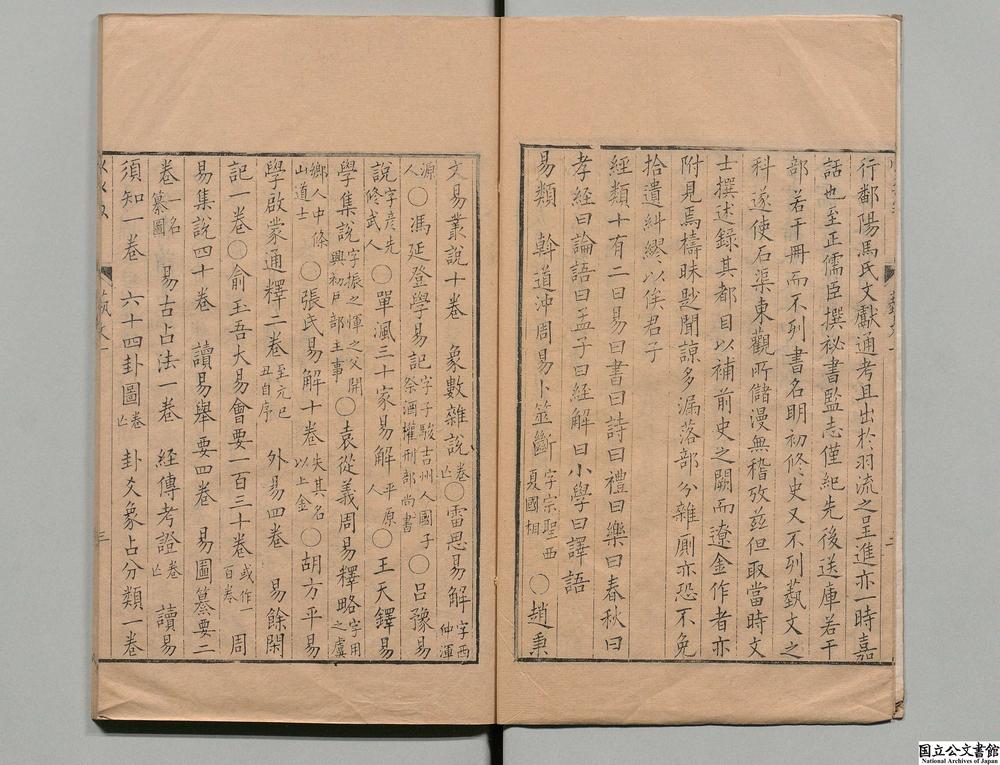 行鄱陽馬氏文獻通考且出於羽流之呈進亦一時嘉
話也至正儒臣撰祕書監志僅紀先後送庫若干
部若干冊而不列書名明初修史又不列藝文之
科遂使石渠東觀所儲漫無稽攷茲但取當時文
士撰述錄其都目以補前史之闕而遼金作者亦
附見焉檮昧尟聞諒多漏落部分雜厠亦恐不免
拾遺糾繆以俟君子
經類十有二曰易曰書曰詩曰禮曰樂曰春秋曰
孝經曰論語曰孟子曰經解曰小學曰譯語
易類 斡道沖周易卜筮斷字宗聖西夏國相 ○趙秉
文易叢說十卷 象數雜說卷亡○雷思易解字西仲渾
源人○馮延登學易記字子駿吉州人國子祭酒權刑部尚書○呂豫易
說字彥先修武人○單渢三十家易解平原人○王天鐸易
學集說字振之惲之父開興初戶部主事○袁從義周易釋略字用之虞
鄉人中條山道士○張氏易解十卷失其名以上金○胡方平易
學啟蒙通釋二卷至元己丑自序 外易四卷 易餘閑
記一卷○俞玉吾大易會要一百三十卷或作一百卷 周
易集說四十卷 讀易舉要四卷 易圖纂要二
卷一名纂圖 易古占法一卷 經傳考證卷亡 讀易
須知一卷 六十四卦圖卷亡 卦爻象占分類一卷
藝文一
三
国立公文書館
National Archives of Japan